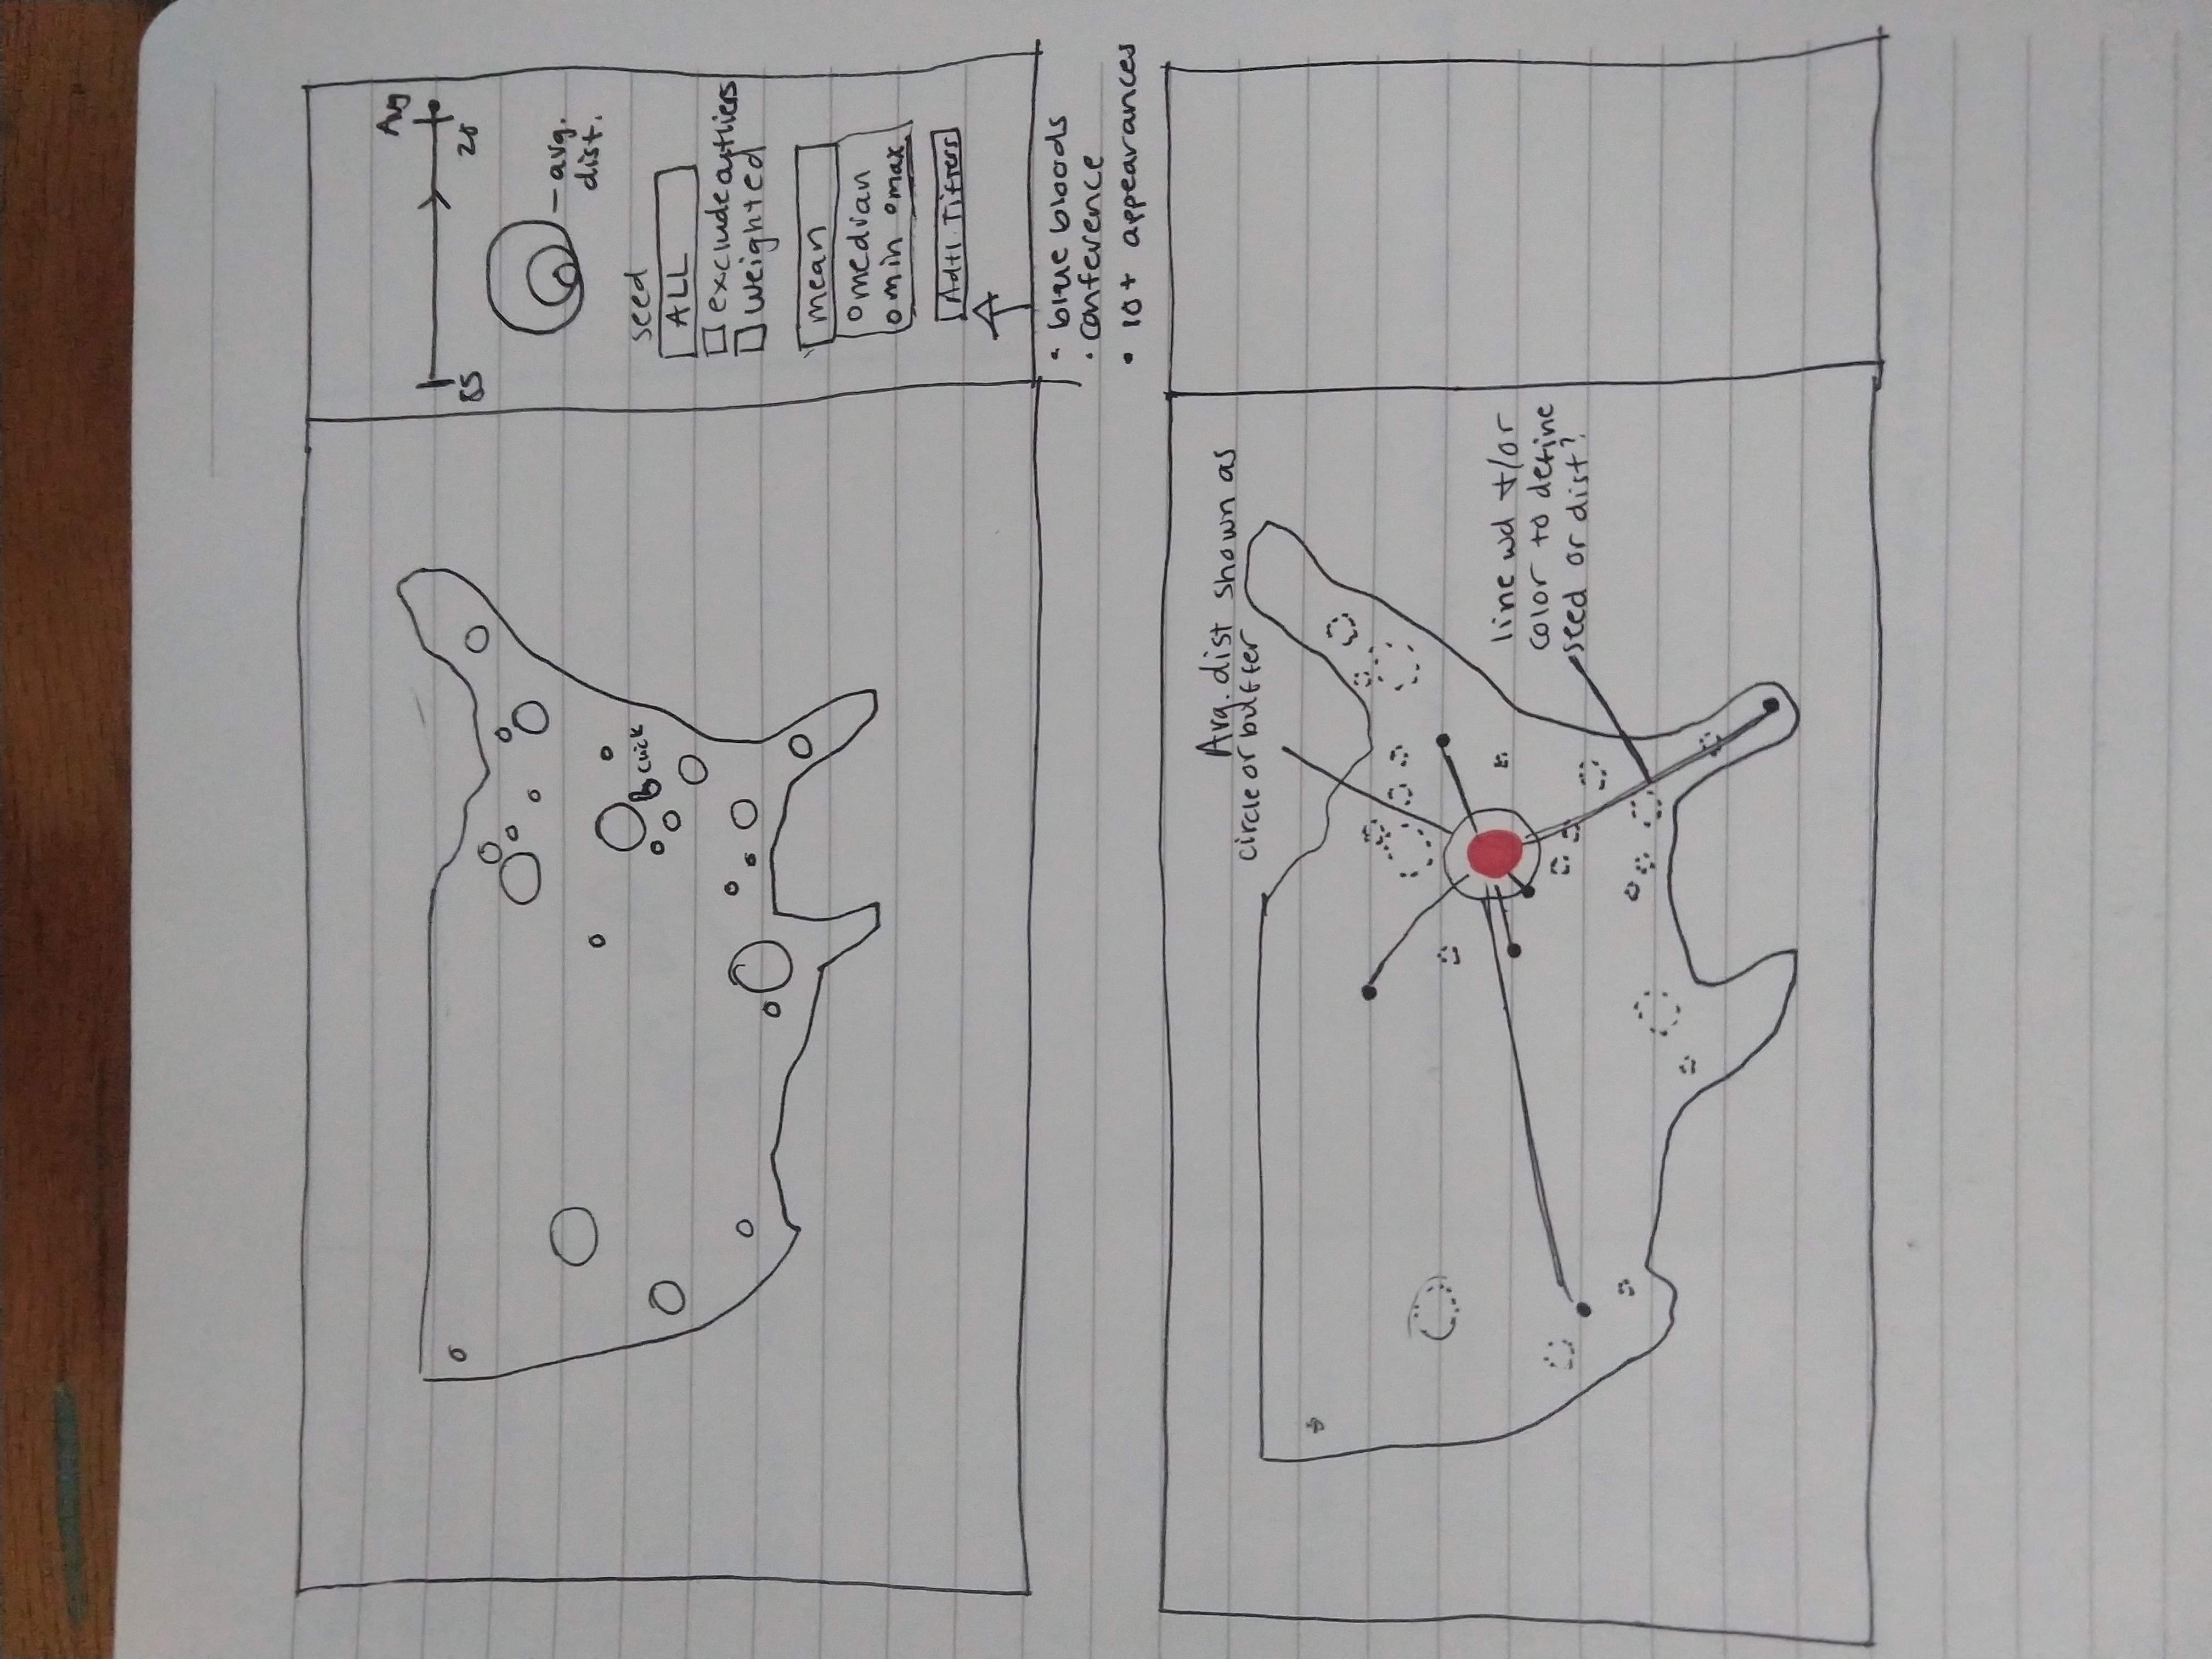 Avg
85
20
avg.
dist.
seed
ALL
click
exclude outliers
weighted
mean
median
min max
• blue bloods
• conference
• 10+ appearances
Avg. dist shown as
circle or buffer
line wd +/or
color to define
seed or dist?